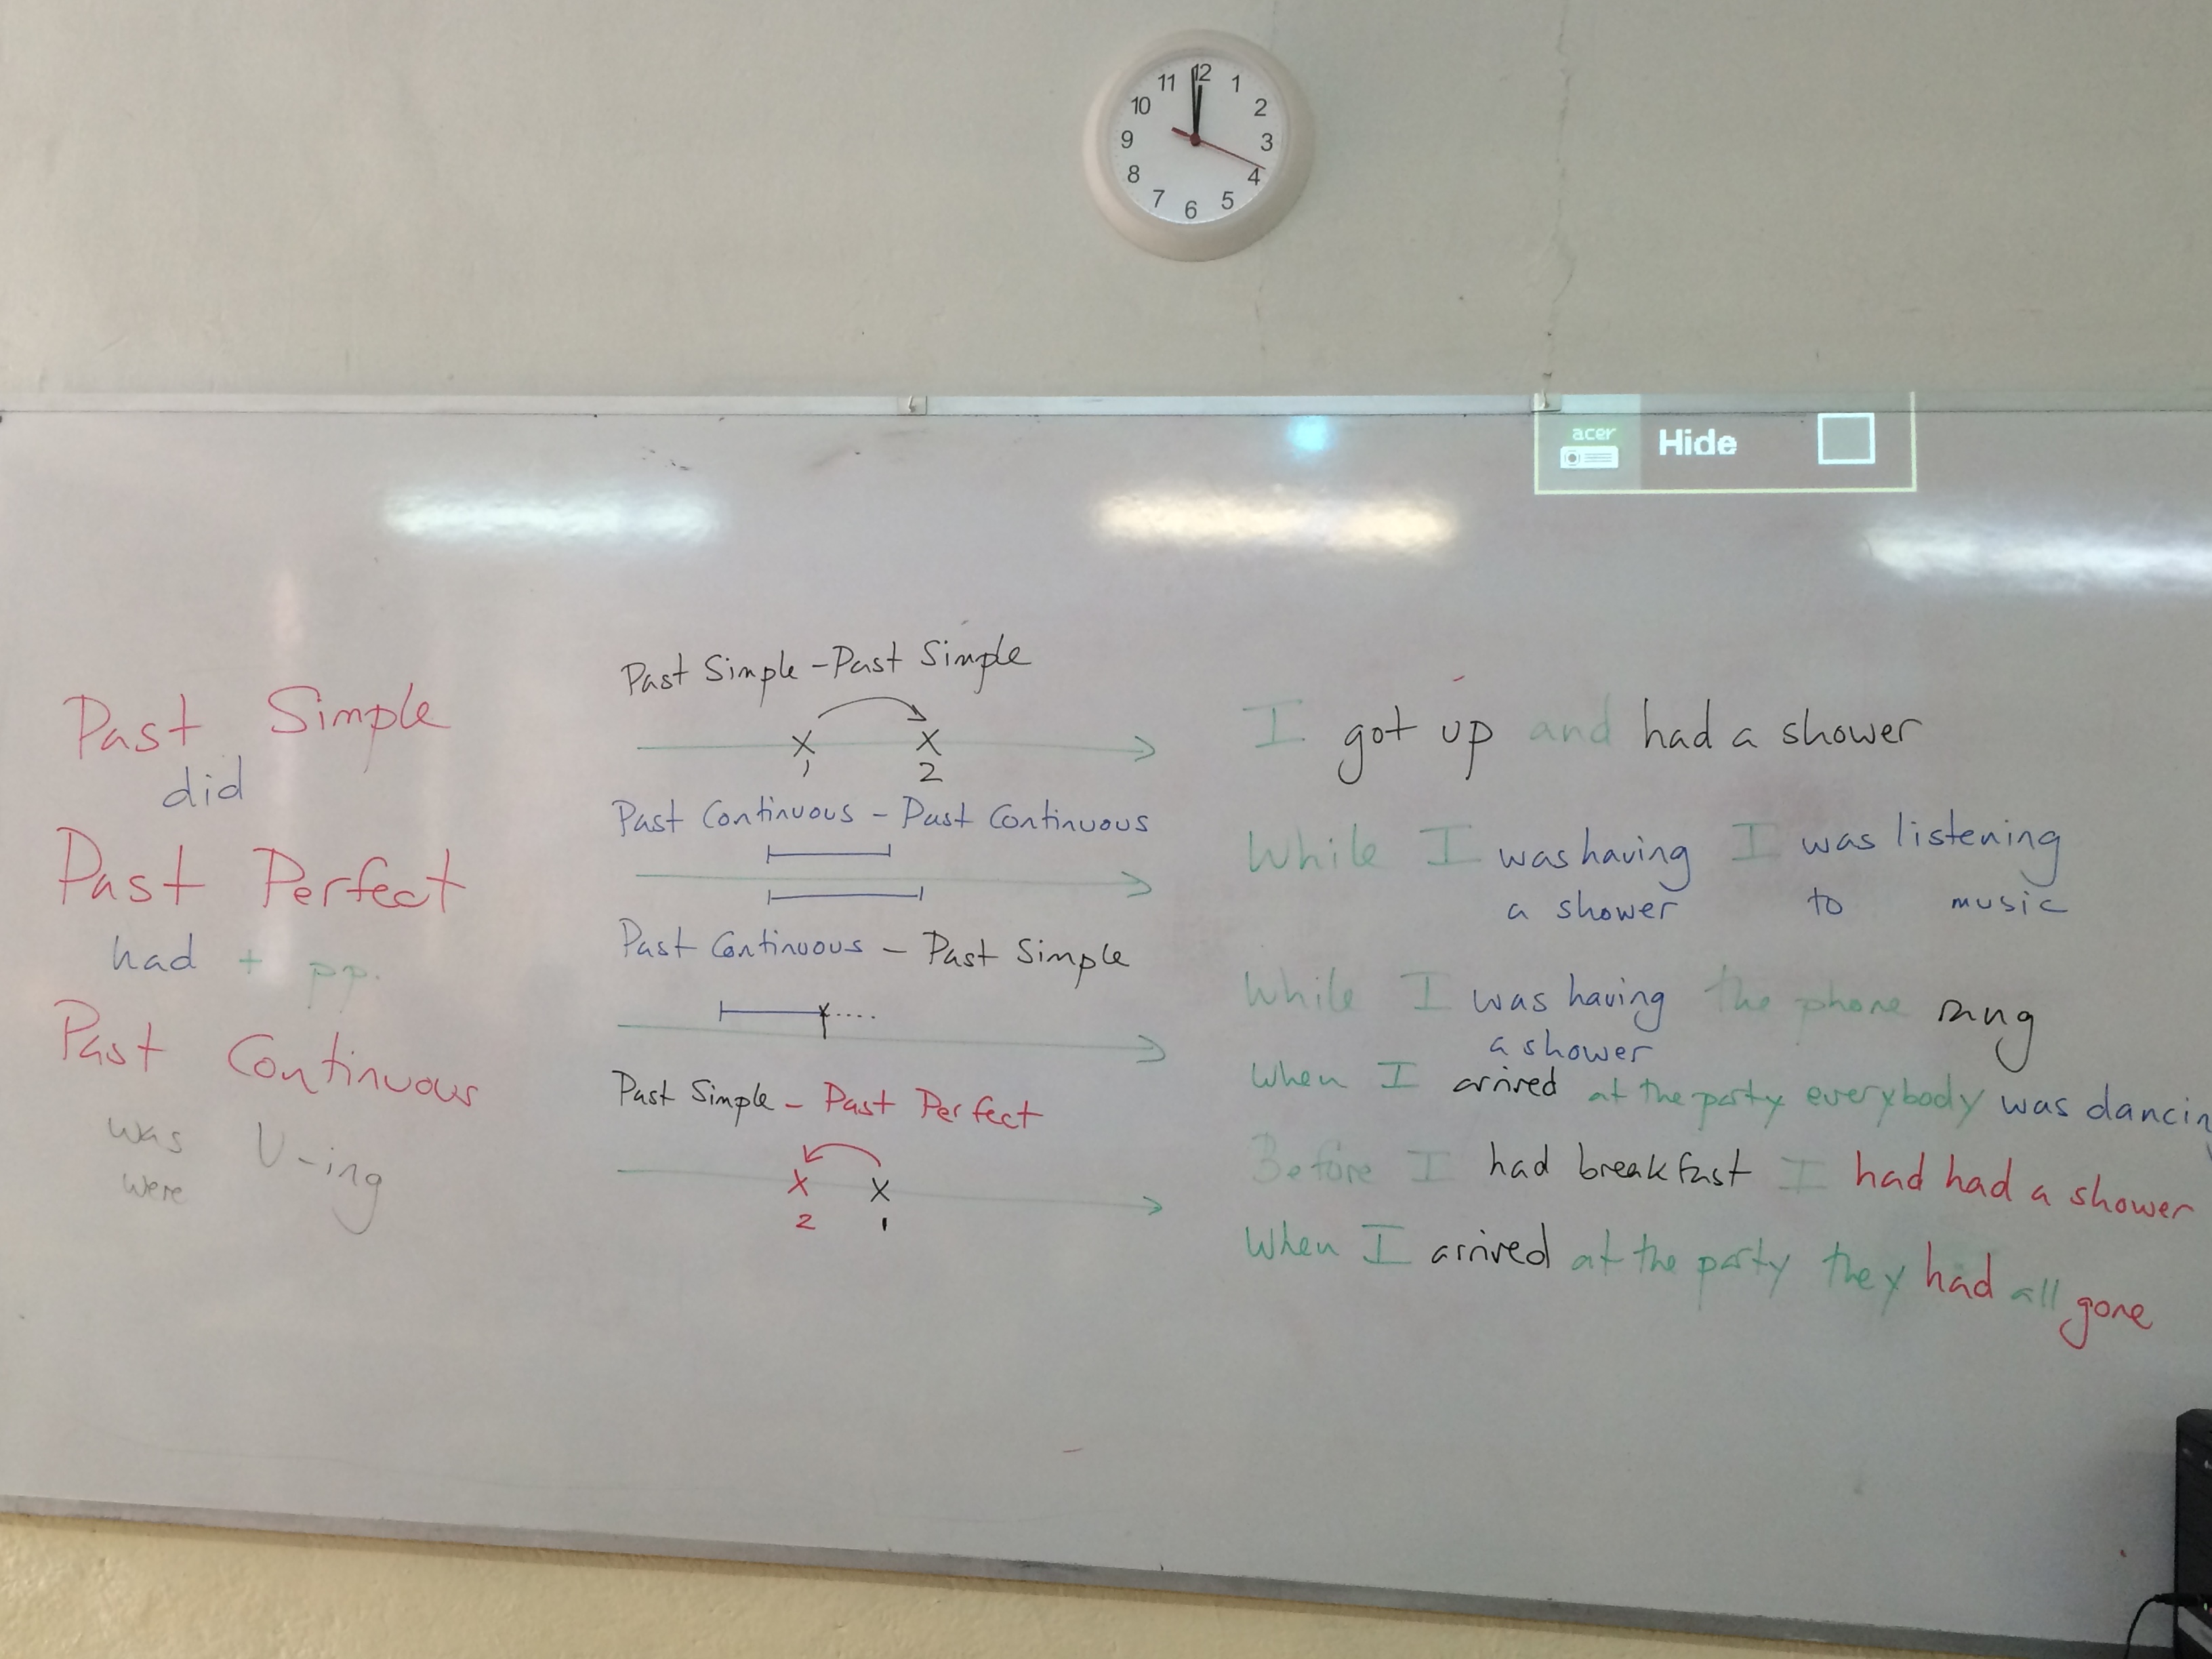 12
11 1
10 2
9 3
8 4
7 5
6
acer Hide
Past Simple
did
Past Perfect
had + pp.
Past Continuous
was V-ing
were
Past Simple - Past Simple
1 2
Past Continuous - Past Continuous
Past Continuous - Past Simple
Past Simple - Past Perfect
2 1
I got up and had a shower
While I was having I was listening
a shower to music
While I was having the phone rang
a shower
When I arrived at the party everybody was dancin
Before I had breakfast I had had a shower
When I arrived at the party they had all gone